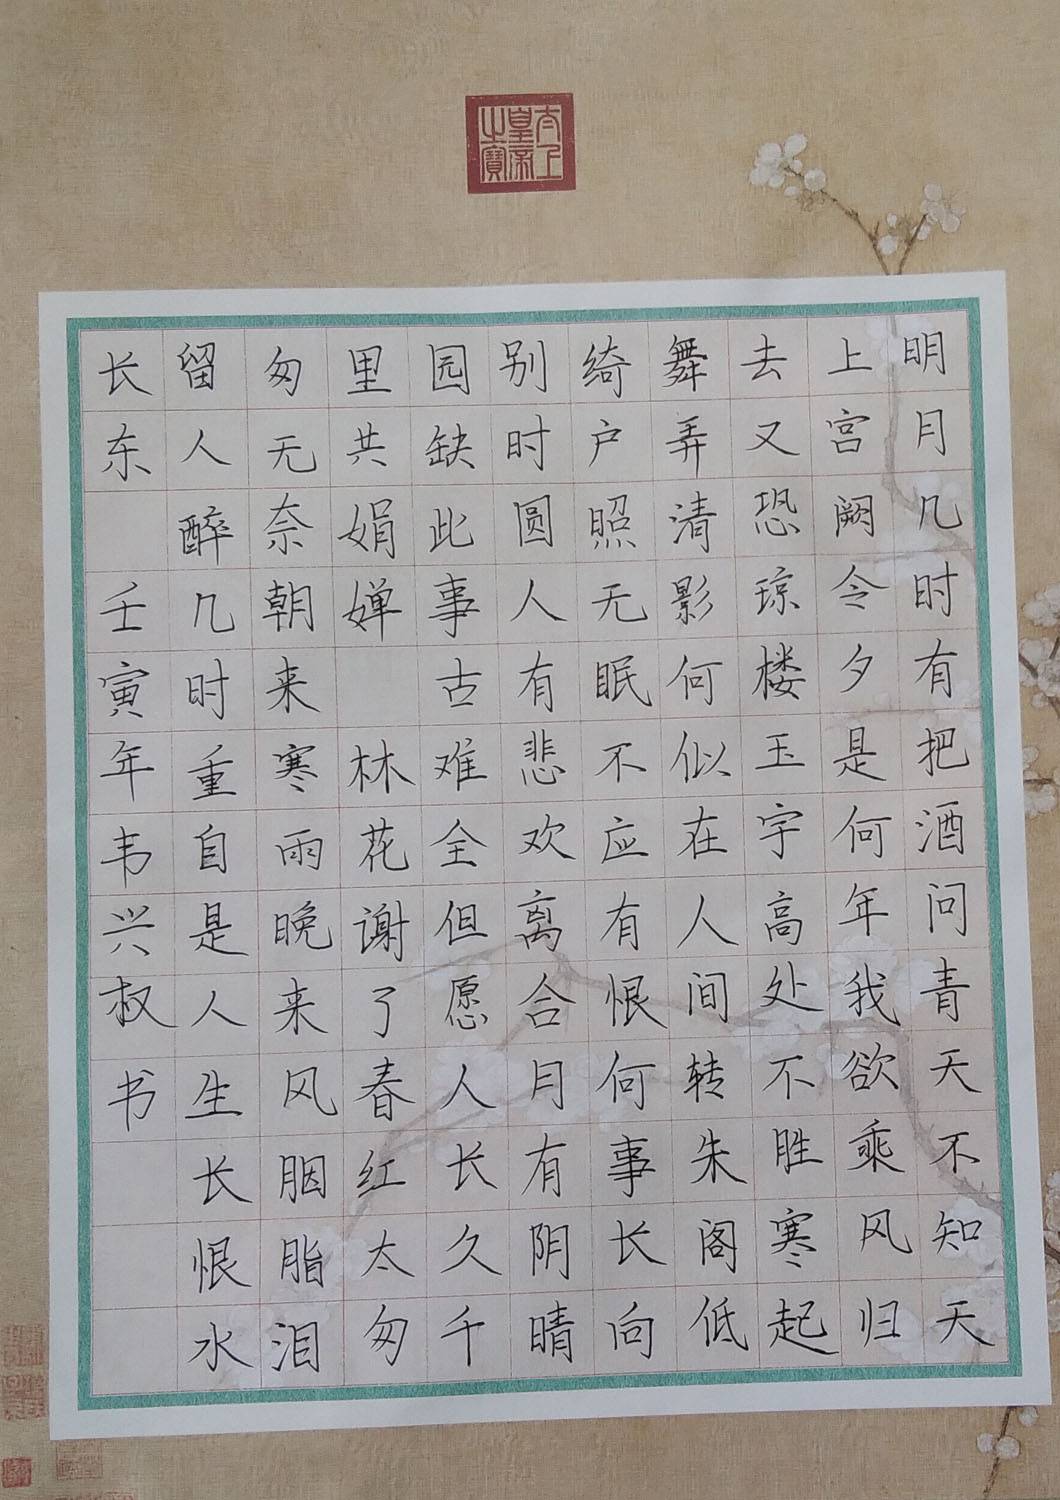 太上
皇帝
之寶
明月几时有把酒问青天不知天
上宫阙今夕是何年我欲乘风归
去又恐琼楼玉宇高处不胜寒起
舞弄清影何似在人间转朱阁低
绮户照无眠不应有恨何事长向
别时圆人有悲欢离合月有阴晴
园缺此事古难全但愿人长久千
里共娟婵 林花谢了春红太匆
匆无奈朝来寒雨晚来风胭脂泪
留人醉几时重自是人生长恨水
长东 壬寅年韦兴权书